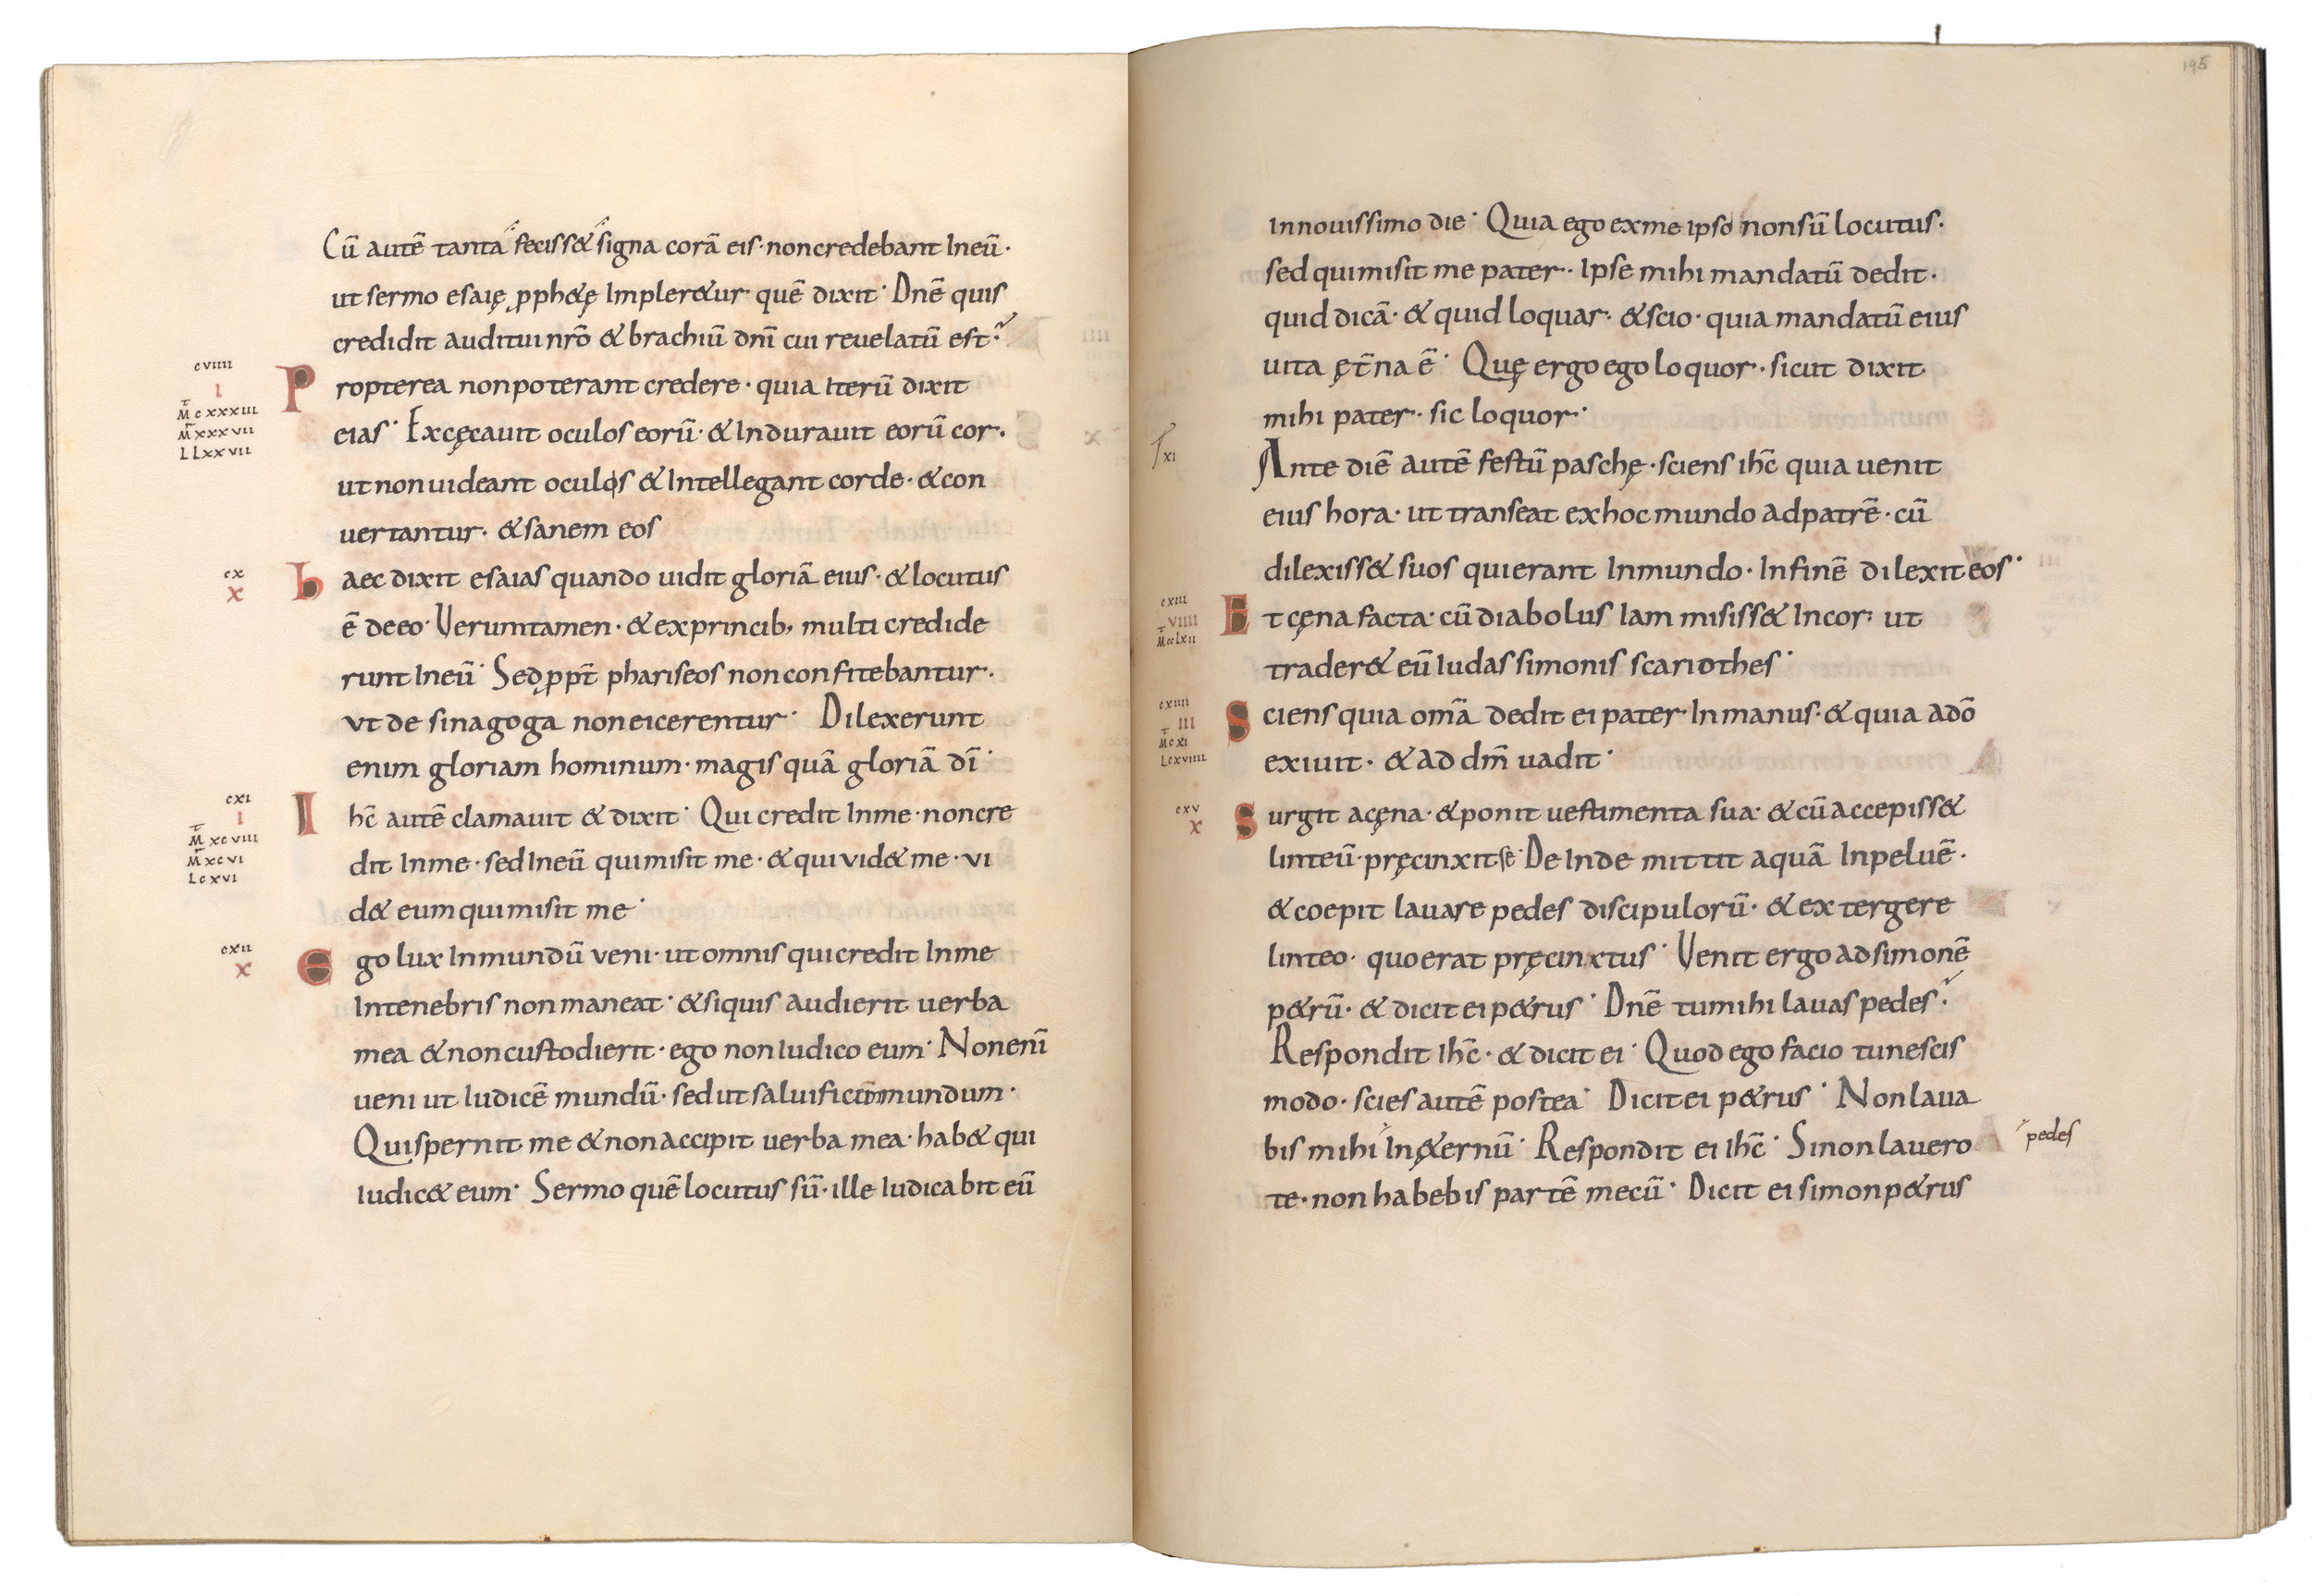 Cū autē tanta feciss& signa corā eis · noncredebant Ineū ·
ut sermo esaię ꝓph&ę Impler&ur · quē dixit · Dnē quis
credidit auditui nrō & brachiū dnī cui reuelatū est ?
cviiii
I
M̄ cxxxiii
M̄r xxxvii
L Lxxvii
Propterea nonpoterant credere · quia Iterū dixit
eias · Excęcauit oculos eorū · & Indurauit eorū cor ·
ut non uideant oculos & Intellegant corde · & con
uertantur · & sanem eos
cx
x
haec dixit esaias quando uidit gloriā eius · & locutus
ē deeo · Verumtamen · & exprincib; multi credide
runt Ineū · Sed ꝓpt̄ phariseos non confitebantur ·
vt de sinagoga non eicerentur · Dilexerunt
enim gloriam hominum · magis quā gloriā dī ·
cxi
I
M̄ xcviii
M̄r xcvi
Lcxvi
Ihc̄ autē clamauit & dixit · Qui credit Inme · noncre
dit Inme · sed Ineū qui misit me · & qui vid& me · vi
d& eum qui misit me ·
cxii
x
Ego lux Inmundū veni · ut omnis qui credit Inme
Intenebris non maneat · & siquis audierit verba
mea & non custodierit · ego non Iudico eum · Non enī
ueni ut Iudicē mundū · sed ut saluificēm mundum ·
Qui spernit me & non accipit uerba mea · hab& qui
Iudic& eum · Sermo quē locutus sū · ille Iudicabit eū
195
Innouissimo die · Quia ego exme ipso non sū locutus ·
sed qui misit me pater · Ipse mihi mandatū dedit ·
quid dicā · & quid loquar · & scio · quia mandatū eius
uita ęt̄na ē · Quę ergo ego loquor · sicut dixit
mihi pater · sic loquor ·
xi
Ante diē autē festū paschę · sciens ihc̄ quia uenit
eius hora · ut transeat exhoc mundo adpatrē · cū
dilexiss& suos qui erant Inmundo · Infinē dilexit eos ·
cxiii
viiii
M̄ cclxii
Et cęna facta · cū diabolus Iam misiss& Incor : ut
trader& eū Iudas simonis scariothes ·
cxiiii
III
M̄ cxi
Lcxviiii
Sciens quia om̄a dedit ei pater · Inmanus · & quia adō
exiuit · & ad dm̄ uadit ·
cxv
x
Surgit acęna · & ponit uestimenta sua · & cū accepiss&
linteū · pręcinxit se · DeInde mittit aquā Inpeluē ·
& coepit lauare pedes discipulorū · & extergere
linteo · quo erat pręcinxtus · Venit ergo ad simonē
p&rū · & dicit ei p&rus · Dnē tu mihi lauas pedes ?
Respondit Ihc̄ · & dicit ei · Quod ego facio tu nescis
modo · scies autē postea · Dicit ei p&rus · Non laua
bis mihi In&ernū · Respondit ei Ihc̄ · Si non lauero
pedes
te · non habebis partē mecū · Dicit ei simon p&rus